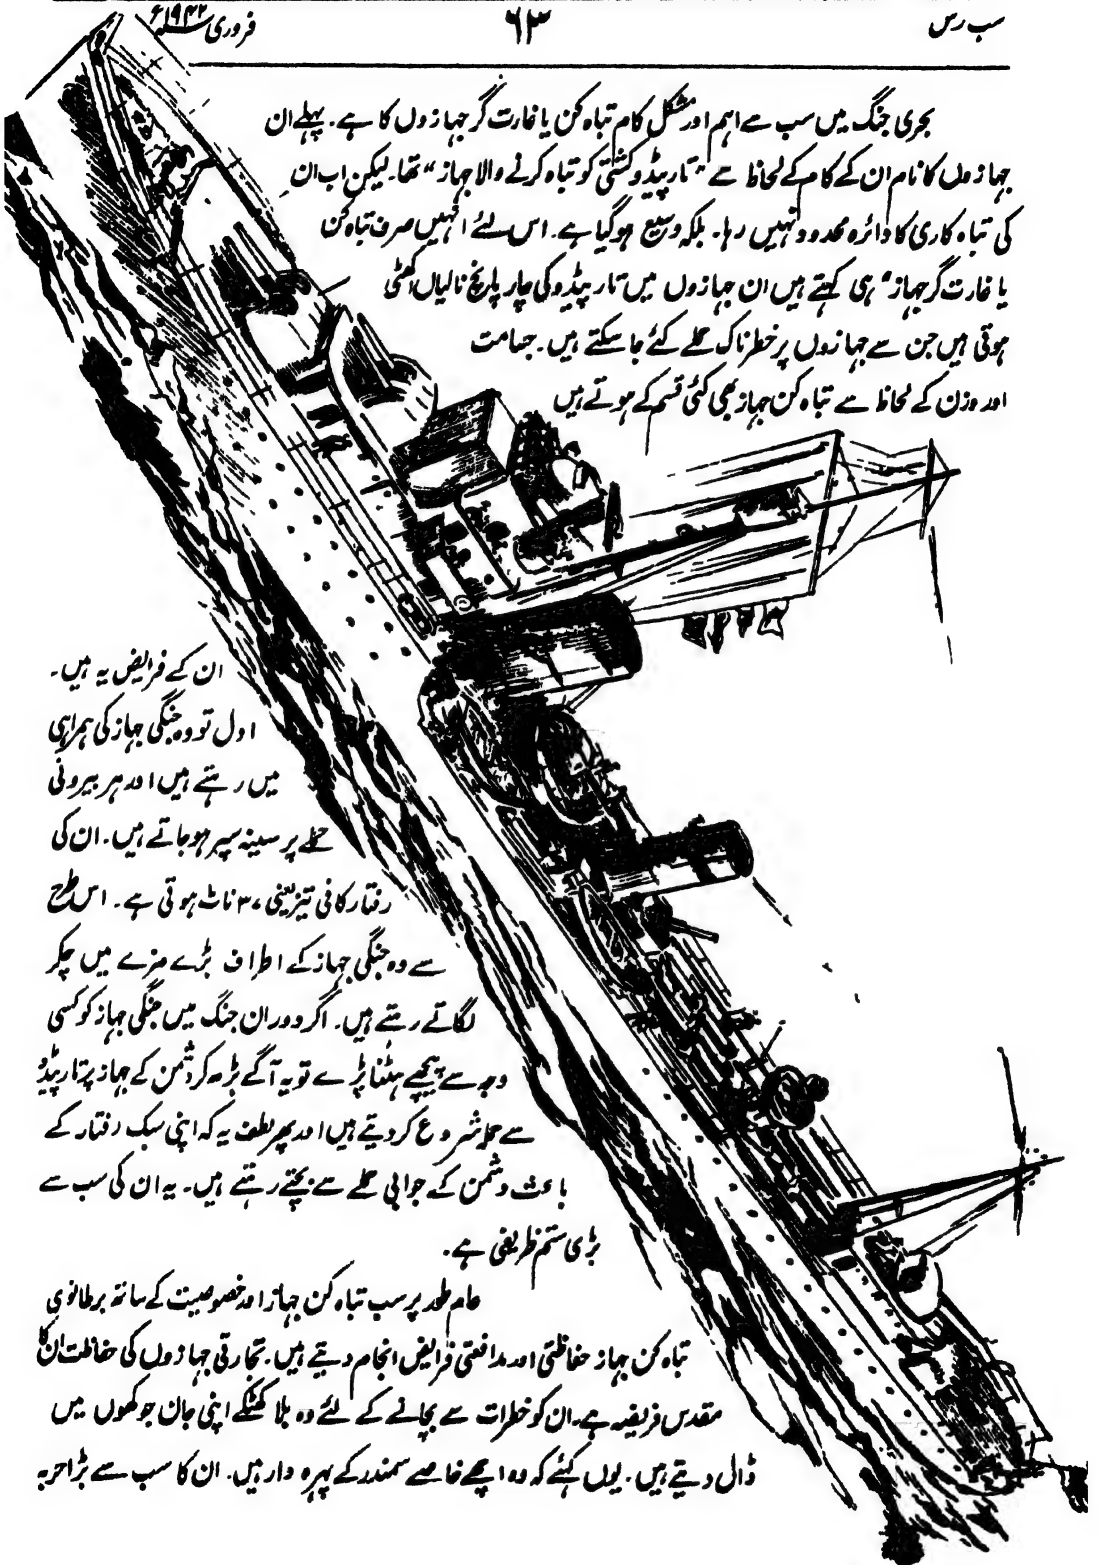 سب رس
۶۳
فروری ۱۹۴۲ء
بحری جنگ میں سب سے اہم اور مشکل کام تباہ کن یا غارت گر جہازوں کا ہے۔ پہلے ان
جہازوں کا نام ان کے کام کے لحاظ سے "تارپیڈو کشتی کو تباہ کرنے والا جہاز" تھا۔ لیکن اب ان
کی تباہ کاری کا دائرہ محدود نہیں رہا۔ بلکہ وسیع ہوگیا ہے۔ اس لئے انہیں صرف تباہ کن
یا غارت گر جہاز" ہی کہتے ہیں ان جہازوں میں تارپیڈو کی چار پانچ نالیاں اکھٹی
ہوتی ہیں جن سے جہازوں پر خطرناک حملے کئے جا سکتے ہیں۔ جسامت
اور وزن کے لحاظ سے تباہ کن جہاز بھی کئی قسم کے ہوتے ہیں
ان کے فرایض یہ ہیں۔
اول تو وہ جنگی جہاز کی ہمراہی
میں رہتے ہیں اور ہر بیرونی
حملے پر سینہ سپر ہوجاتے ہیں۔ ان کی
رفتار کافی تیز یعنی ۳۷ ناٹ ہوتی ہے۔ اس طرح
سے وہ جنگی جہاز کے اطراف بڑے مزے میں چکر
لگاتے رہتے ہیں۔ اگر دوران جنگ میں جنگی جہاز کو کسی
وجہ سے پیچھے ہٹنا پڑے تو یہ آگے بڑھ کر دشمن کے جہاز پر تارپیڈو
سے حملہ شروع کردیتے ہیں اور پھر لطف یہ کہ اپنی سبک رفتار کے
باعث دشمن کے جوابی حملے سے بچتے رہتے ہیں۔ یہ ان کی سب سے
بڑی ستم ظریفی ہے۔
عام طور پر سب تباہ کن جہاز اور خصوصیت کے ساتھ برطانوی
تباہ کن جہاز حفاظتی اور مدافعتی فرایض انجام دیتے ہیں۔ تجارتی جہازوں کی حفاظت ان کا
مقدس فریضہ ہے۔ ان کو خطرات سے بچانے کے لئے وہ بلا کھٹکے اپنی جان جوکھوں میں
ڈال دیتے ہیں۔ یوں کہئے کہ وہ اچھے خاصے سمندر کے پہرہ دار ہیں۔ ان کا سب سے بڑا حربہ